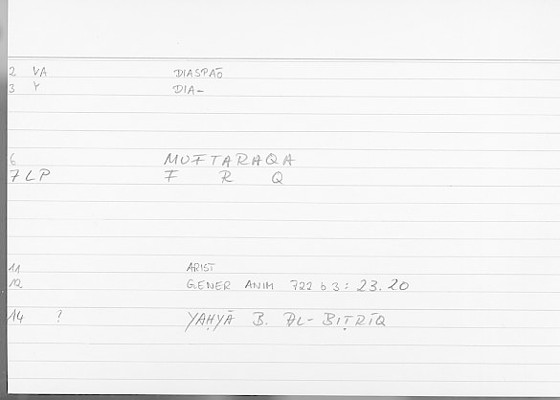 2 VA DIASPAŌ
3 Y DIA-
6 MUFTARAQA
7 LP F R Q
11 ARIST
12 GENER ANIM 722 b 3 : 23.20
14 ? YAḤYĀ B. AL-BIṬRĪQ